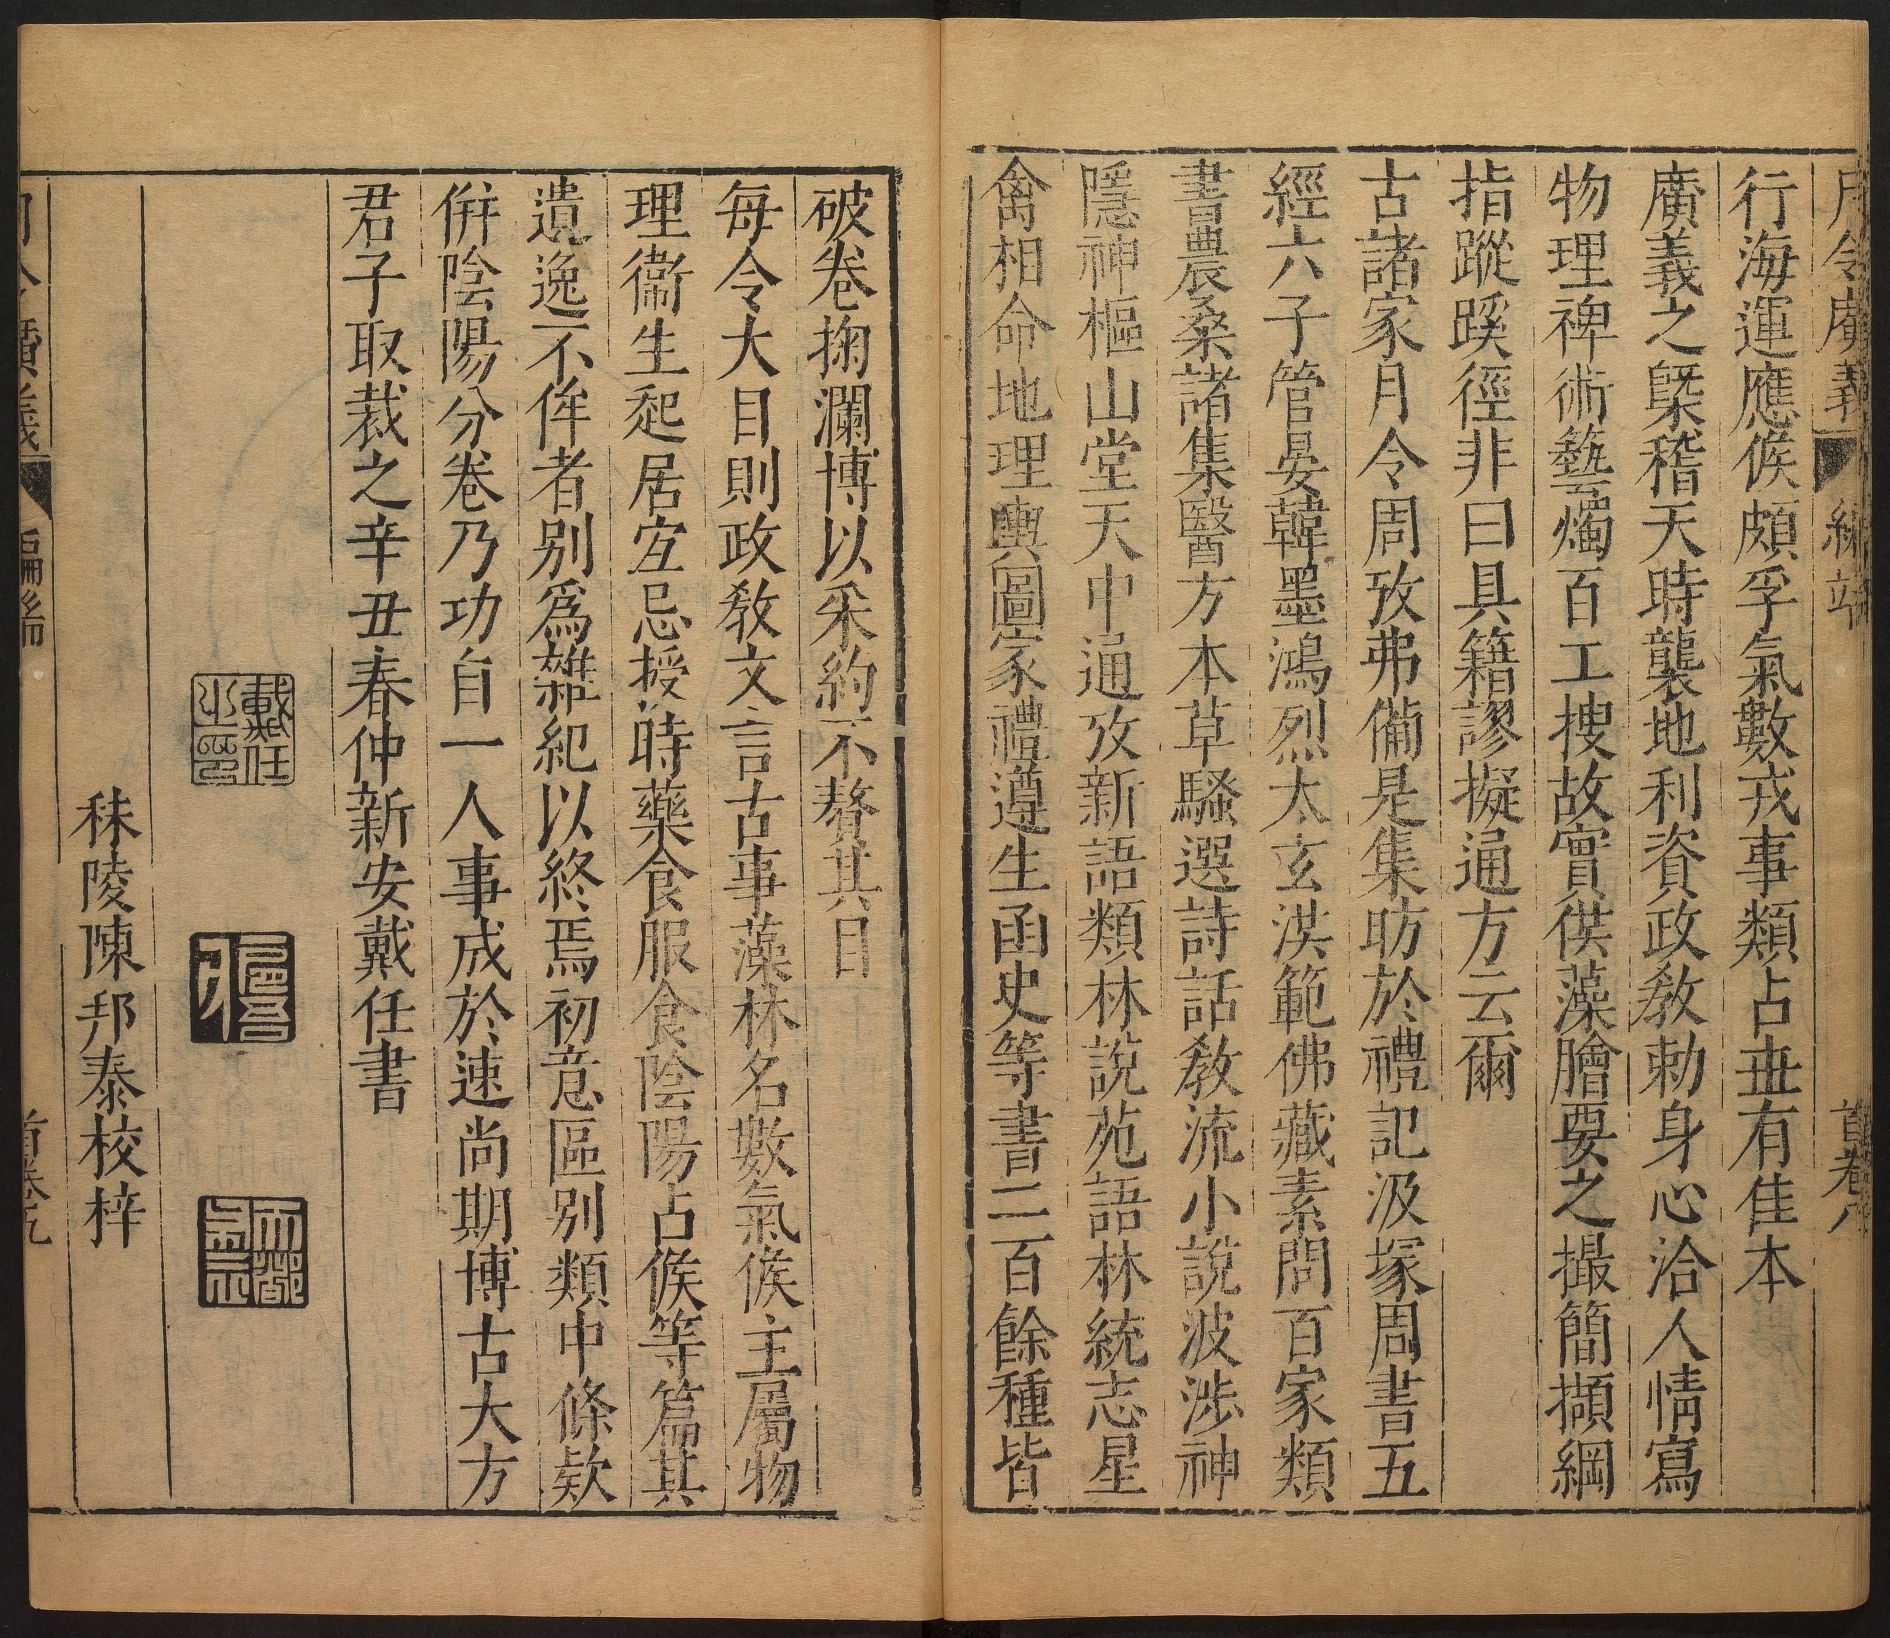 月令廣義 編端 首卷八
行海運應候頗孚氣數戎事類占世有佳本
廣義之槩稽天時襲地利資政敎勅身心洽人情寫
物理裨術藝燭百工搜故實供藻膾要之撮簡擷綱
指蹤蹊徑非曰具籍謬擬通方云爾
古諸家月令周攷弗備是集昉於禮記汲塚周書五
經六子管晏韓墨鴻烈太玄洪範佛藏素問百家類
書農桑諸集醫方本草騷選詩話敎流小說波涉神
隱神樞山堂天中通攷新語類林說苑語林統志星
禽相命地理輿圖家禮遵生函史等書二百餘種皆
破卷掬瀾博以釆約不贅其目
每令大目則政敎文言古事藻林名數氣候主屬物
理衞生起居宜忌授時藥食服食陰陽占候等篇其
遺逸不侔者别爲雜紀以終焉初意區别類中條欵
併陰陽分卷乃功自一人事成於速尚期博古大方
君子取裁之辛丑春仲新安戴任書
戴任之印
秣陵陳邦泰校梓
月令廣義 編端 首卷九